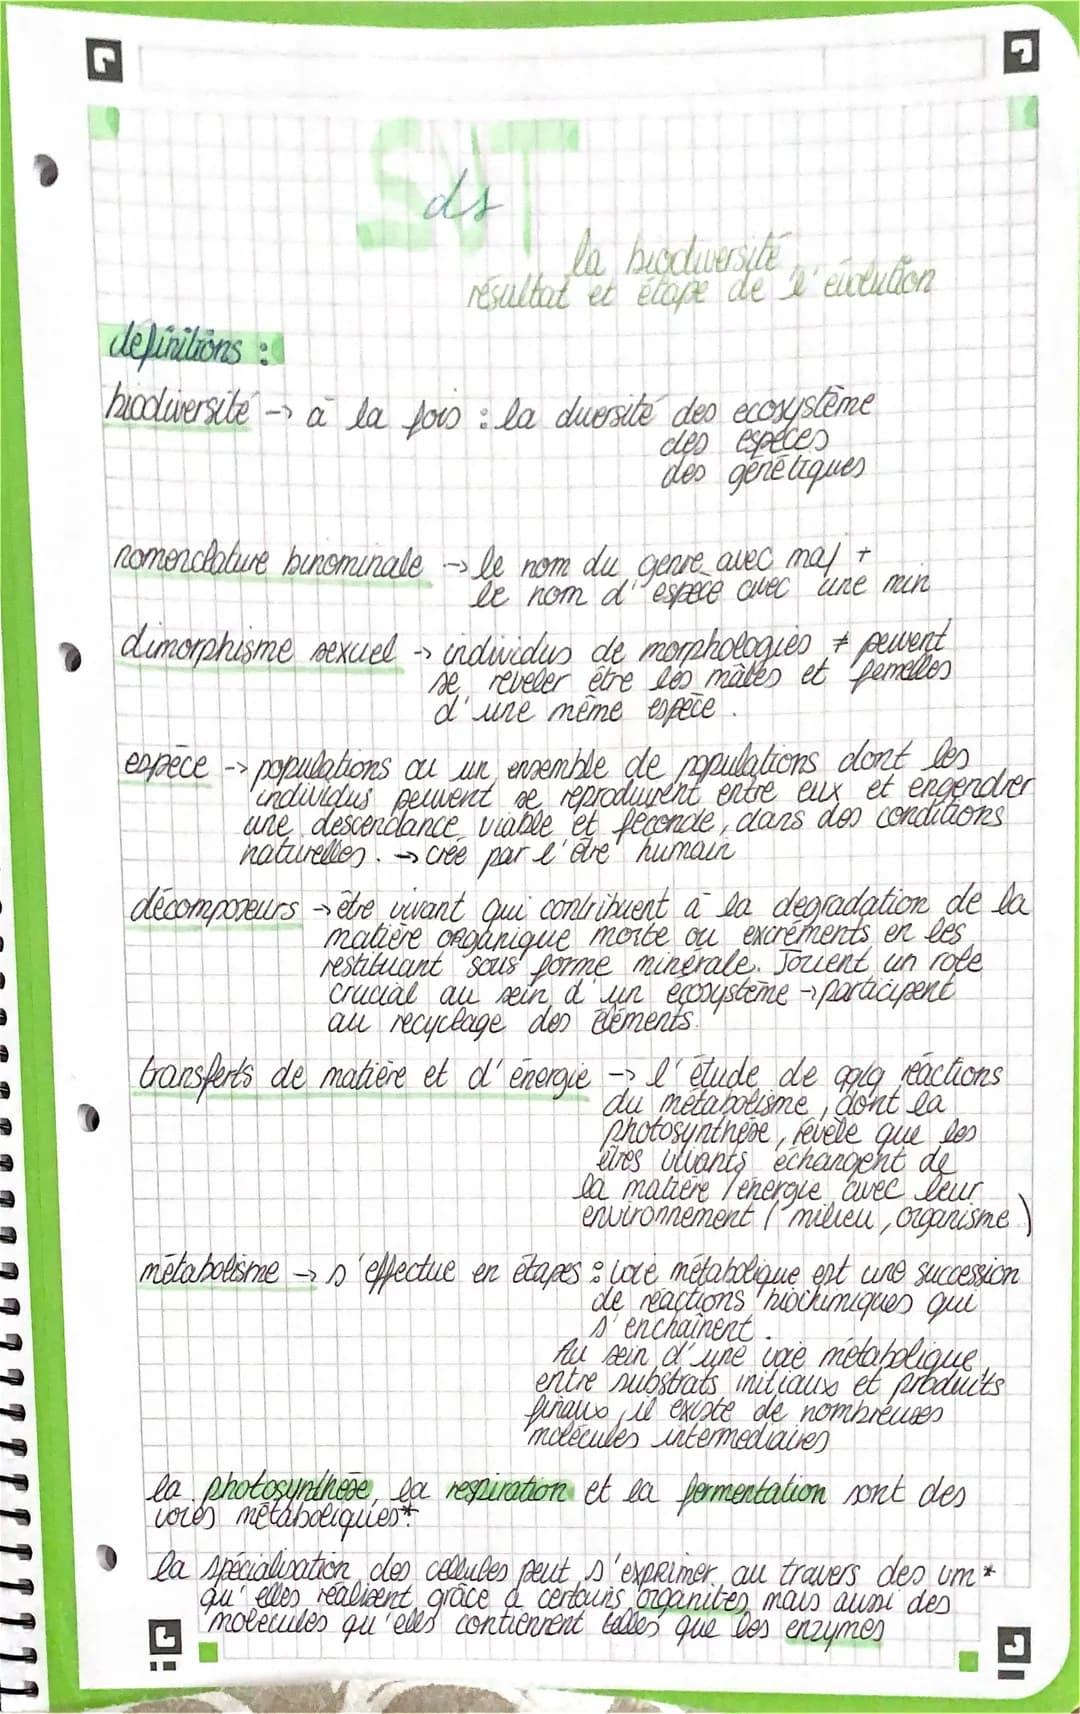 SVT
ds
la biodiversité
résultat et étape de l'évolution
definitions :
biodiversité -> à la fois : la diversité des ecosystème
des espèces
des génétiques
nomenclature binominale -> le nom du genre avec maj +
le nom d'espèce avec une min
dimorphisme sexuel -> individus de morphologies ≠ peuvent
se reveler être les mâles et femelles
d'une même espèce.
espèce -> populations ou un ensemble de populations dont les
individus peuvent se reproduirent entre eux et engendrer
une descendance viable et féconde, dans des conditions
naturelles. -> crée par l'être humain
décomposeurs -> être vivant qui contribuent à la degradation de la
matière organique morte ou excréments en les
restituant sous forme minérale. Jouent un role
crucial au sein d'un écosystème -> participent
au recyclage des éléments.
transferts de matière et d'énergie -> l'étude de qqlq réactions
du métabolisme, dont la
photosynthèse, révèle que les
êtres vivants échangent de
la matière / énergie avec leur
environnement ( milieu, organisme )
métabolisme -> s'effectue en étapes : voie métabolique est une succession
de réactions biochimiques qui
s'enchaînent.
Au sein d'une voie métabolique,
entre substrats initiaux et produits
finaux, il existe de nombreuses
molécules intermediaires
la photosynthèse, la respiration et la fermentation sont des
voies métaboliques*
la spécialisation des cellules peut s'exprimer au travers des vm*
qu'elles réalisent grâce à certains organites mais aussi des
molécules qu'elles contiennent telles que les enzymes